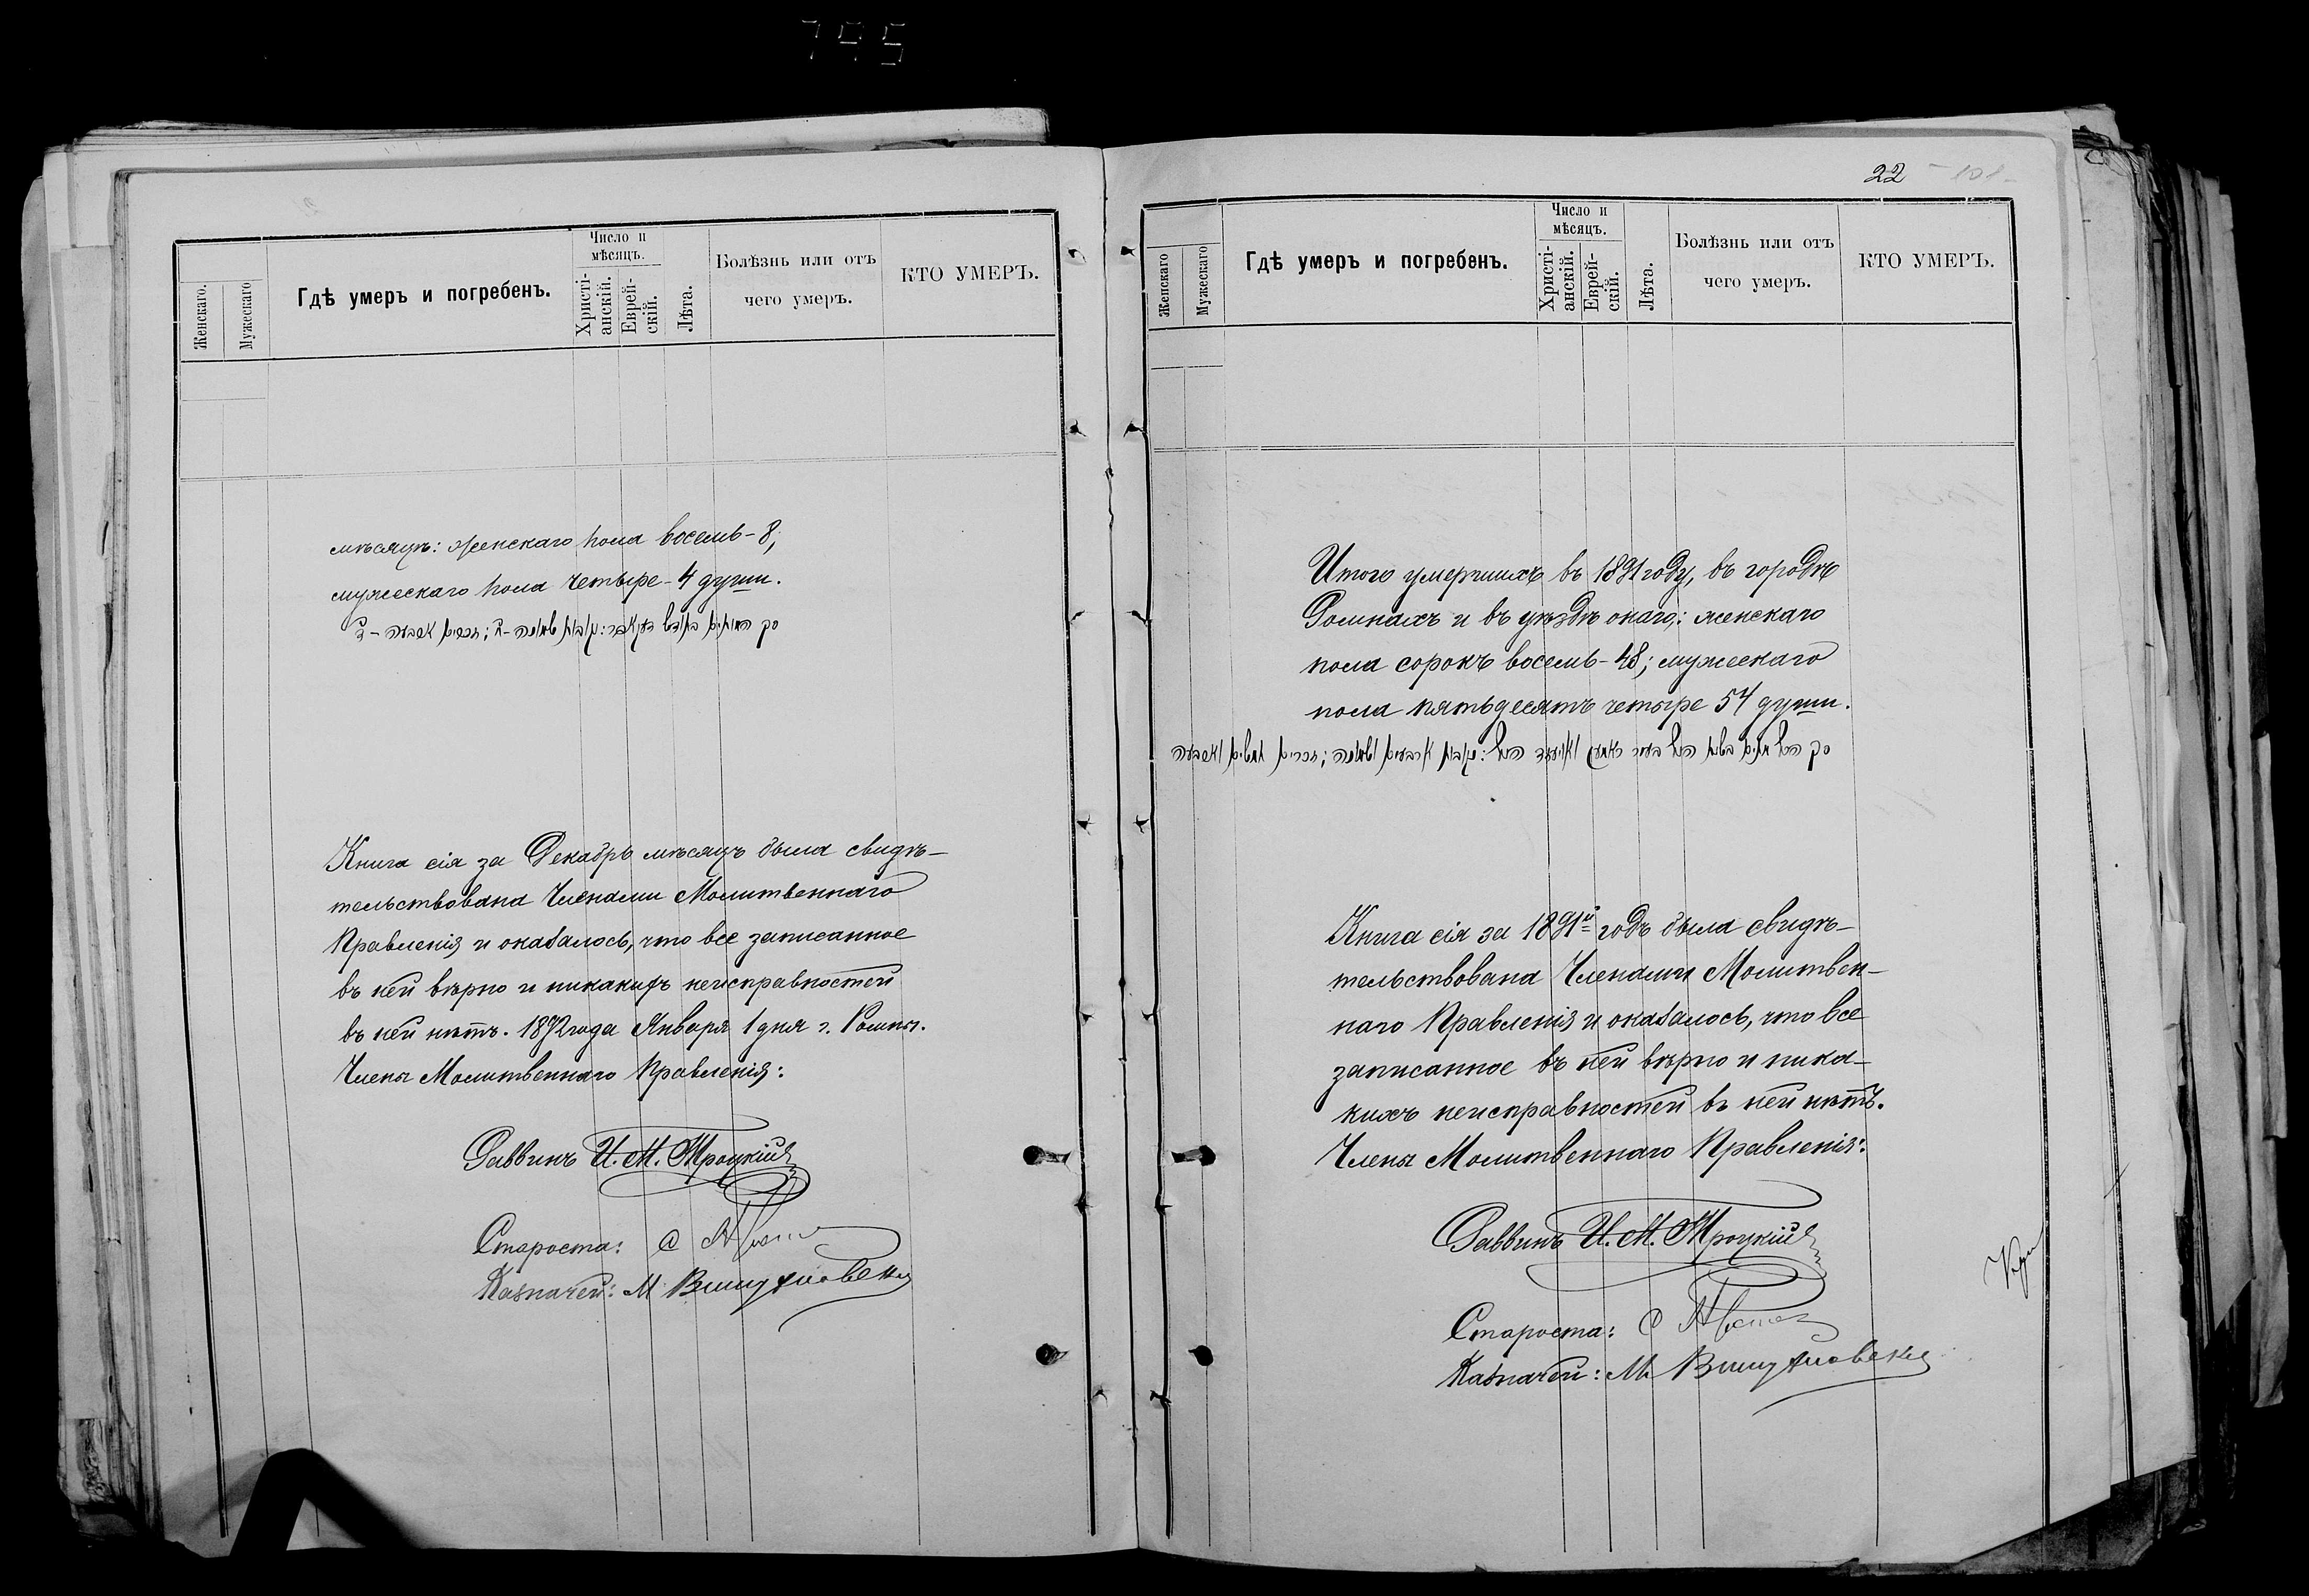 795
Женскаго.
Мужескаго
Гдѣ умеръ и погребенъ.
Число и
мѣсяцъ.
Христі-
анскій.
Еврей-
скій.
Лѣта.
Болѣзнь или отъ
чего умеръ.
КТО УМЕРЪ.
мѣсяцъ: женскаго пола восемь - 8;
мужескаго пола четыре - 4 души.
סך המתים בחודש דעקאבר: נקבות שמונה - ח; זכרים ארבעה - ד
Книга сія за Декабрь мѣсяцъ была свидѣ-
тельствована Членами Молитвеннаго
Правленія и оказалось, что все записанное
въ ней вѣрно и никакихъ неисправностей
въ ней нѣтъ. 1892 года Января 1 дня г. Ромны.
Члены Молитвеннаго Правленія:
Раввинъ И. М. Троцкій
Староста: С
Казначей: М
22 -101-
Женскаго
Мужескаго
Гдѣ умеръ и погребенъ.
Число и
мѣсяцъ.
Христі-
анскій.
Еврей-
скій.
Лѣта.
Болѣзнь или отъ
чего умеръ.
КТО УМЕРЪ.
Итого умершихъ въ 1891 году, въ городѣ
Ромнахъ и въ уѣздѣ онаго: женскаго
пола сорокъ восемь - 48; мужескаго
пола пятьдесятъ четыре 54 души.
סך הכל מתים בשנת בעיר ראמען: נקבות ארבעים ושמונה; זכרים חמשים וארבעה
Книга сія за 1891й годъ была свидѣ-
тельствована Членами Молитвен-
наго Правленія и оказалось, что все
записанное въ ней вѣрно и ника-
кихъ неисправностей въ ней нѣтъ.
Члены Молитвеннаго Правленія:
Раввинъ И. М. Троцкій
Староста: С
Казначей: М